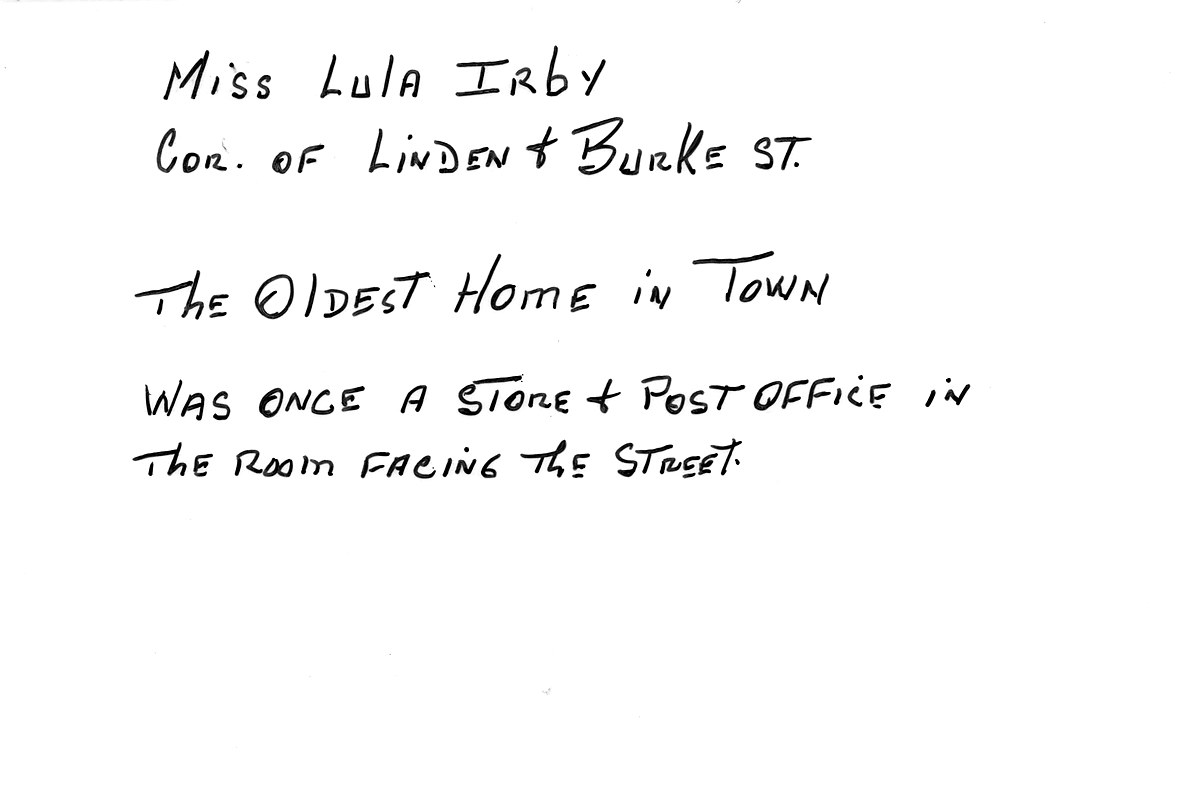 Miss Lula Irby
Cor. of Linden & Burke St.
The Oldest Home in Town
Was once a store & Post Office in
the room facing the street.